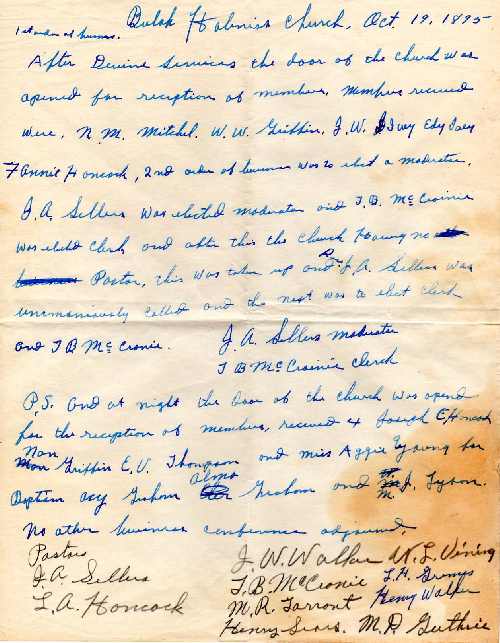 Bulah Holiness Church. Oct 19, 1895
1st order of business.
After Devine Services the door of the church was
opened for reception of members. Members recieved
were, N. M. Mitchel. W. W. Griffin, J. W. Ivey Edy Ivey
Fannie Honcock, 2nd order of business was to elect a moderator.
J. A. Sellers was elected moderator and T. B. McCrainie
was elected Clerk and after this the church Having no
Pastor, this was taken up and Pr. J. A. Sellers was
unomoniously called and the next was to elect clerk
and T B McCronie. J. A. Sellers moderator
T B McCrainie Clerch
P.S. and at night the door of the church was opend
for the reception of members, recieved 4 Joseph E Honcock
Nan Griffin E. V. Thompson and miss Aggie Young for
Baptism Graham Alma Graham and M J. Tyson.
No other business conference adjourned.
Pastors J. W. Walker W. L. Vining
J A. Sellers T. B. McCronie
L. A. Honcock M. R. Tarront Henry Walker
Henry Sears M. D. Guthrie